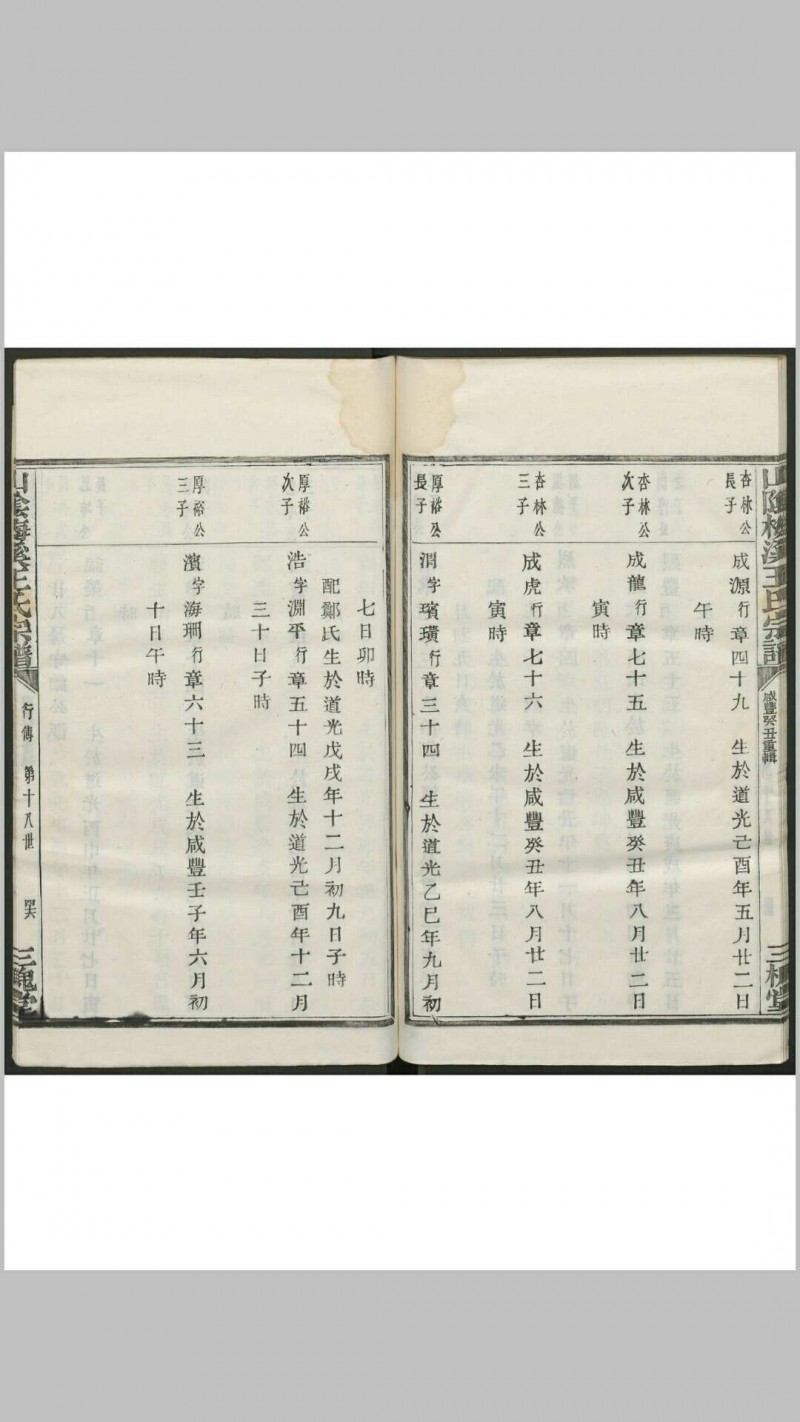 山陰梅溪王氏宗譜
咸豐癸丑重輯
三槐堂
杏林公
長子
成源行章四十九 生於道光己酉年五月廿二日
午時
杏林公
次子
成龍行章七十五 生於咸豐癸丑年八月廿二日
寅時
杏林公
三子
成虎行章七十六 生於咸豐癸丑年八月廿二日
寅時
厚裕公
長子
渭字璸璜行章三十四 生於道光乙巳年九月初
七日卯時
配鄭氏生於道光戊戌年十二月初九日子時
厚裕公
次子
浩字淵平行章五十四 生於道光己酉年十二月
三十日子時
厚裕公
三子
濱字海珊行章六十三 生於咸豐壬子年六月初
十日午時
山陰梅溪王氏宗譜
行傳 第十八世
三槐堂